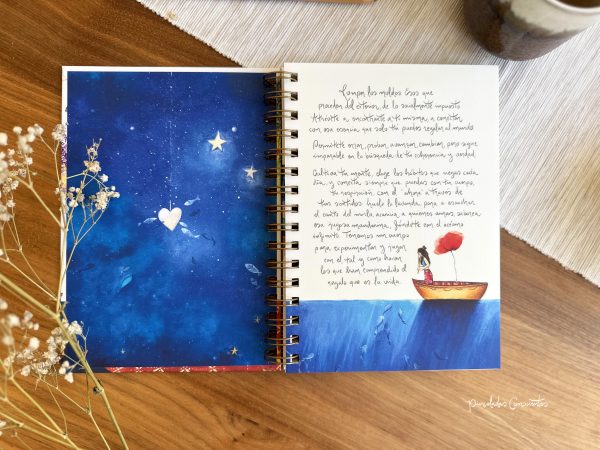 Rompe los moldes esos que
proceden del exterior, de lo socialmente impuesto
Atrévete a encontrarte a ti misma, a conectar
con esa esencia que solo tú puedes regalar al mundo
Permítete errar, probar, avanzar, cambiar, pero sigue
imparable en la búsqueda de tu coherencia y verdad.
Cultiva tu mente, elige los hábitos que riegas cada
día, y conecta siempre que puedas con tu cuerpo,
tu respiración, con el "ahora" a través de
tus sentidos. Huele la lavanda, para a escuchar
el canto del mirlo,
infinito. Tenemos un cuerpo
para experimentar y jugar
con él tal y como hacen
los que han comprendido el
regalo que es la vida.
Pinceladas Conscientes